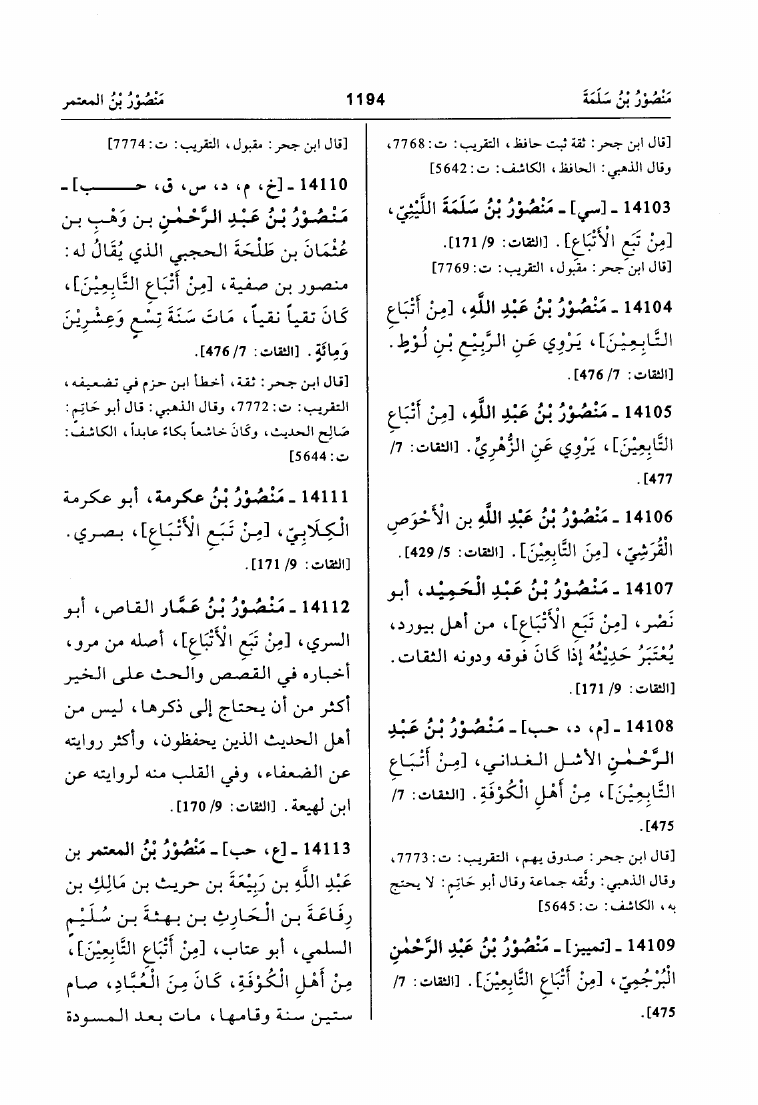 مَنْصُوْرُ بْنُ سَلَمَةَ
1194
مَنْصُوْرُ بْنُ المعتمر
[قال ابن حجر: ثقة ثبت حافظ، التقريب: ت:7768،
وقال الذهبي: الحافظ، الكاشف: ت:5642]
14103 ـ [سي] ـ مَنْصُوْرُ بْنُ سَلَمَةَ اللَّيْثِيّ،
[مِنْ تَبَعِ الأَتْبَاعِ]. [الثقات: 9/ 171].
[قال ابن حجر: مقبول، التقريب: ت:7769]
14104 ـ مَنْصُوْرُ بْنُ عَبْدِ اللَّهِ، [مِنْ أَتْبَاعِ
التَّابِعِيْنَ]، يَرْوِي عَنِ الرَّبِيْعِ بْنِ لُوْطٍ.
[الثقات: 7/ 476].
14105 ـ مَنْصُوْرُ بْنُ عَبْدِ اللَّهِ، [مِنْ أَتْبَاعِ
التَّابِعِيْنَ]، يَرْوِي عَنِ الزُّهْرِيِّ. [الثقات: 7/
477].
14106 ـ مَنْصُوْرُ بْنُ عَبْدِ اللَّهِ بن الأَحْوَصِ
الْقُرَشِيّ، [مِنَ التَّابِعِيْنَ]. [الثقات: 5/ 429].
14107 ـ مَنْصُوْرُ بْنُ عَبْدِ الْحَمِيْدِ، أبو
نَصْر، [مِنْ تَبَعِ الأَتْبَاعِ]، من أهل بيورد،
يُعْتَبَرُ حَدِيْثُهُ إذا كَانَ فوقه ودونه الثقات.
[الثقات: 9/ 171].
14108 ـ [م، د، حب] ـ مَنْصُوْرُ بْنُ عَبْدِ
الرَّحْمٰنِ الأشل الغداني، [مِنْ أَتْبَاعِ
التَّابِعِيْنَ]، مِنْ أَهْلِ الْكُوْفَةِ. [الثقات: 7/
475].
[قال ابن حجر: صدوق يهم، التقريب: ت:7773،
وقال الذهبي: وثَّقه جماعة وقال أبو حَاتِم: لا يحتج
به، الكاشف: ت:5645]
14109 ـ [تمييز] ـ مَنْصُوْرُ بْنُ عَبْدِ الرَّحْمٰنِ
الْبُرْجُمِيّ، [مِنْ أَتْبَاعِ التَّابِعِيْنَ]. [الثقات: 7/
475].
[قال ابن حجر: مقبول، التقريب: ت:7774]
14110 ـ [خ، م، د، س، ق، حـــب] ـ
مَنْصُوْرُ بْنُ عَبْدِ الرَّحْمٰنِ بن وَهْبِ بن
عُثْمَانَ بن طَلْحَةَ الحجبي الذي يُقَالُ له:
منصور بن صفية، [مِنْ أَتْبَاعِ التَّابِعِيْنَ]،
كَانَ تقياً نقياً، مَاتَ سَنَةَ تِسْعٍ وَعِشْرِيْنَ
وَمِائَةٍ. [الثقات: 7/ 476].
[قال ابن حجر: ثقة، أخطأ ابن حزم في تضعيفه،
التقريب: ت:7772، وقال الذهبي: قال أبو حَاتِم:
صَالِح الحديث، وكَانَ خاشعاً بكاءً عابداً، الكاشف:
ت:5644]
14111 ـ مَنْصُوْرُ بْنُ عكرمة، أبو عكرمة
الْكِلَابِيّ، [مِنْ تَبَعِ الأَتْبَاعِ]، بصري.
[الثقات: 9/ 171].
14112 ـ مَنْصُوْرُ بْنُ عَمَّار القاص، أبو
السري، [مِنْ تَبَعِ الأَتْبَاعِ]، أصله من مرو،
أخباره في القصص والحث على الخير
أكثر من أن يحتاج إلى ذكرها، ليس من
أهل الحديث الذين يحفظون، وأكثر روايته
عن الضعفاء، وفي القلب منه لروايته عن
ابن لهيعة. [الثقات: 9/ 170].
14113 ـ [ع، حب] ـ مَنْصُوْرُ بْنُ المعتمر بن
عَبْدِ اللَّهِ بن رَبِيْعَةَ بن حريث بن مَالِكِ بن
رِفَاعَةَ بن الْحَارِثِ بن بهثة بن سُلَيْمٍ
السلمي، أبو عتاب، [مِنْ أَتْبَاعِ التَّابِعِيْنَ]،
مِنْ أَهْلِ الْكُوْفَةِ، كَانَ مِنَ الْعُبَّادِ، صام
ستين سنة وقامها، مات بعد المسودة